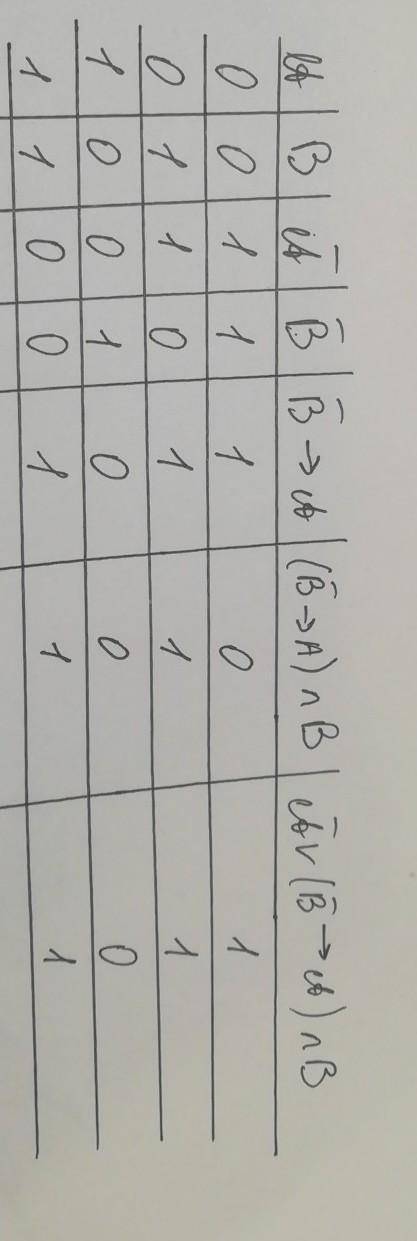 A B Ā B̄ B̄→A (B̄→A)∧B Āv(B̄→A)∧B
0 0 1 1 1 0 1
0 1 1 0 1 1 1
1 0 0 1 0 0 0
1 1 0 0 1 1 1